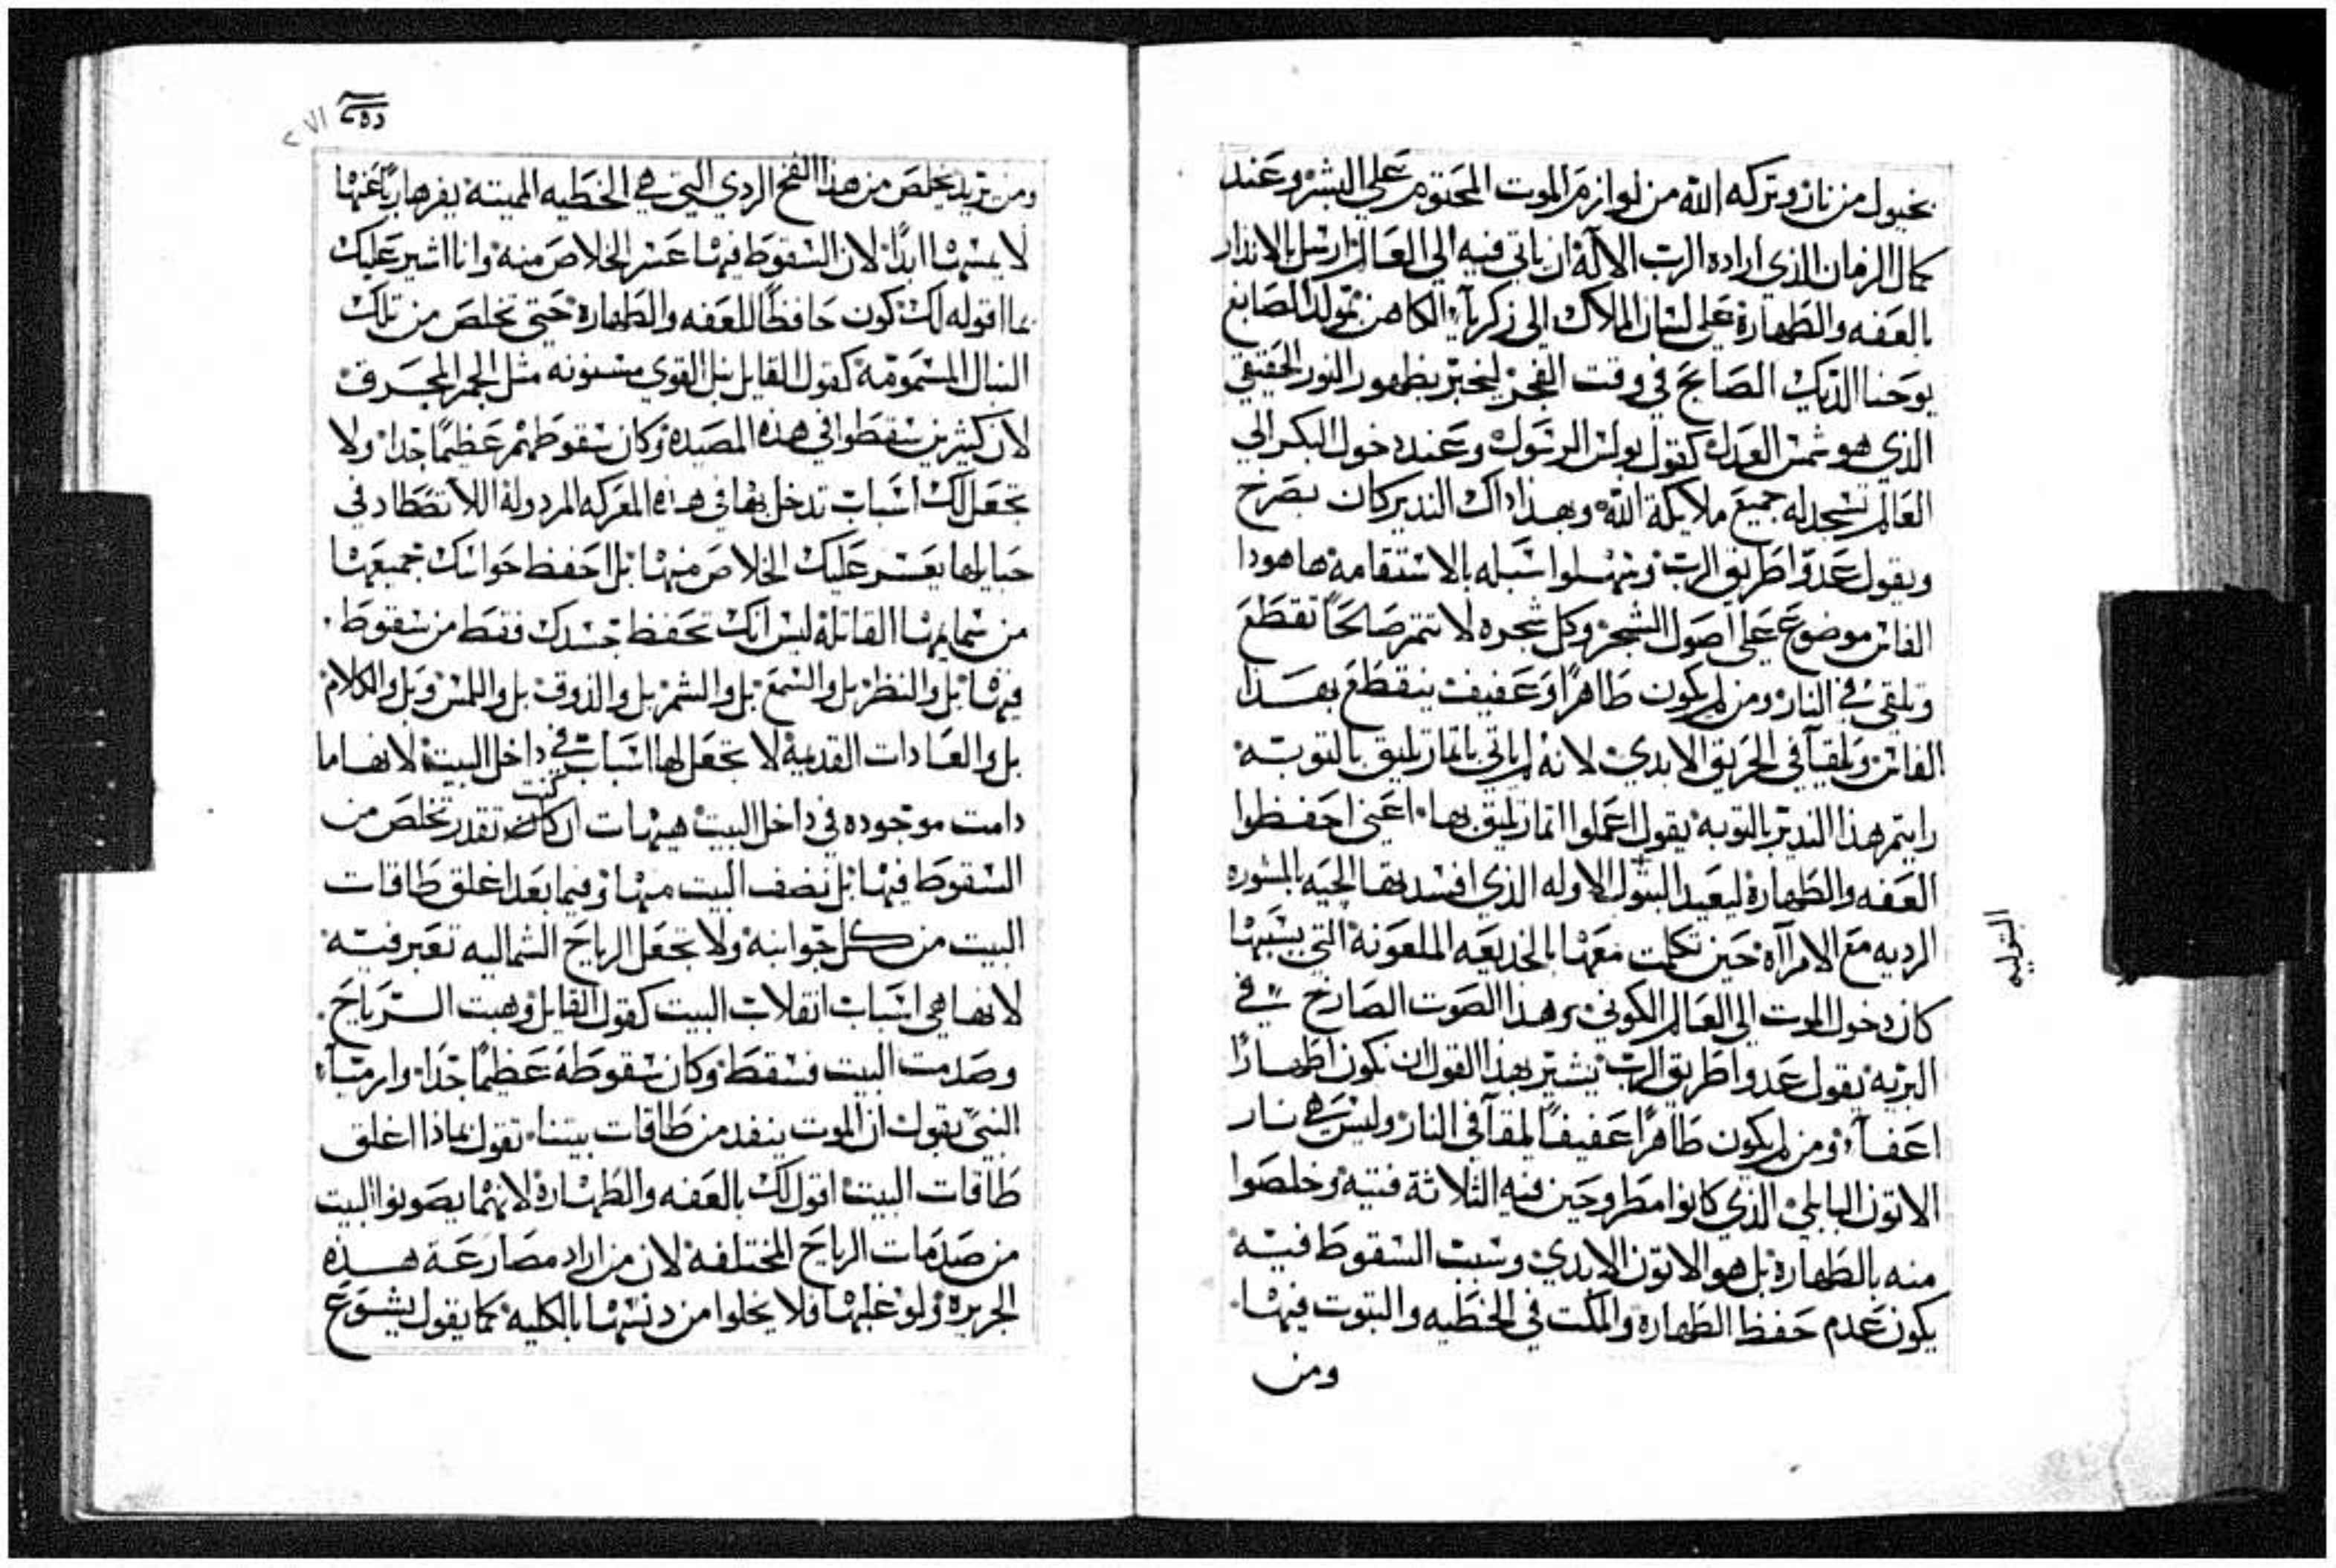 بخيول من نار وتركه الله من لوازم الموت المحتوم علي البشر وعند
كمال الزمان الذي اراده الرب الاله ان ياتي فيه الي العالم ارسل بالاندار
بالعفه والطهارة علي لسان الملاك الي زكريا الكاهن بمولد الصابغ
يوحنا الديك الصايح في وقت الفجر ليخبر بظهور النور الحقيقي
الذي هو شمس العدل كقول بولس الرسول وعند دخول البكر الي
العالم تسجد له جميع ملايكة الله وبهذا داك الندير كان يصرخ
ويقول عدوا طريق الرب وسهلوا سبله بالاستقامة ها هودا
الفاس موضوع علي اصول الشجر وكل شجره لا تتمر صالحاً تقطع
وتلقي في النار ومن لم يكون طاهراً وعفيف ينقطع بهذا
الفاس ويلقيا في الحريق الابدي لانه لم ياتي باتمار تليق بالتوبه
رايتم هذا الندير بالتوبه يقول اعملوا اتمار تليق بها اعني احفظوا
العفه والطهارة ليعيد البتول الاوله الذي افسدتها الحيه بالمشوره
الرديه مع الامرآه حين تكلمت معها بالخديعه الملعونة التي بسببها
كان دخول الموت الي العالم الكوني هذا الصوت الصارخ في
البريه يقول عدوا طريق الرب يشير بهذا القول ان نكون اطهاراً
اعفآ ومن لم يكون طاهراً عفيفاً يلقآ في النار وليس هي نار
الاتون البابلي الذي كانوا مطروحين فيه الثلاثة فتيه وخلصوا
منه بالطهارة بل هو الاتون الابدي وسبب السقوط فيه
يكون عدم حفظ الطهارة والمكت في الخطيه والتبوت فيها
ومن
البتوليه
ومن يريد يخلص من هذا الفخ الردي التي هي الخطيه المميته يفر هارباً عنها
لا يمسها ابداً لان السقوط فيها عسر الخلاص منه وانا اشير عليك
بما اقوله لك كون حافظاً للعفه والطهارة حتي تخلص من تلك
النبال المسمومة كقول القايل نبل القوي مسنونه مثل الجمر المحرق
لان كثيرين سقطوا في هذه المصيده وكان سقوطهم عظيماً جدا ولا
تجعل لك اسباب تدخل بها في هده المعركه المردولة الا تصطاد في
حبايلها يعسر عليك الخلاص منها بل احفظ حواسك جميعها
من سمايمها القاتلة ليس انك تحفظ جسدك فقط من سقوط
فيها بل والنظر بل والسمع بل والشم بل والذوق بل واللمس وبل والكلام
بل والعادات القديمة لا تجعل لها اسباب في داخل البيت لانها ما
دامت موجوده في داخل البيت هيهات ان كنت تقدر تخلص من
السقوط فيها بل نضف البيت منها وفيما بعد اغلق طاقات
البيت من كل جوانبه ولا تجعل الرياح الشماليه تعبر فيه
لانها هي اسباب انقلاب البيت كقول القايل وهبت الرياح
وصدمت البيت فسقط وكان سقوطه عظيماً جدا وارميا
النبي يقول ان الموت ينفد من طاقات بيتنا تقول بماذا اغلق
طاقات البيت اقول لك بالعفه والطهارة لانهما يصونوا البيت
من صدمات الرياح المختلفة لان من اراد مصارعة هذه
الجريره ولو غلبها فلا يخلوا من دنسها بالكليه كما يقول يشوع